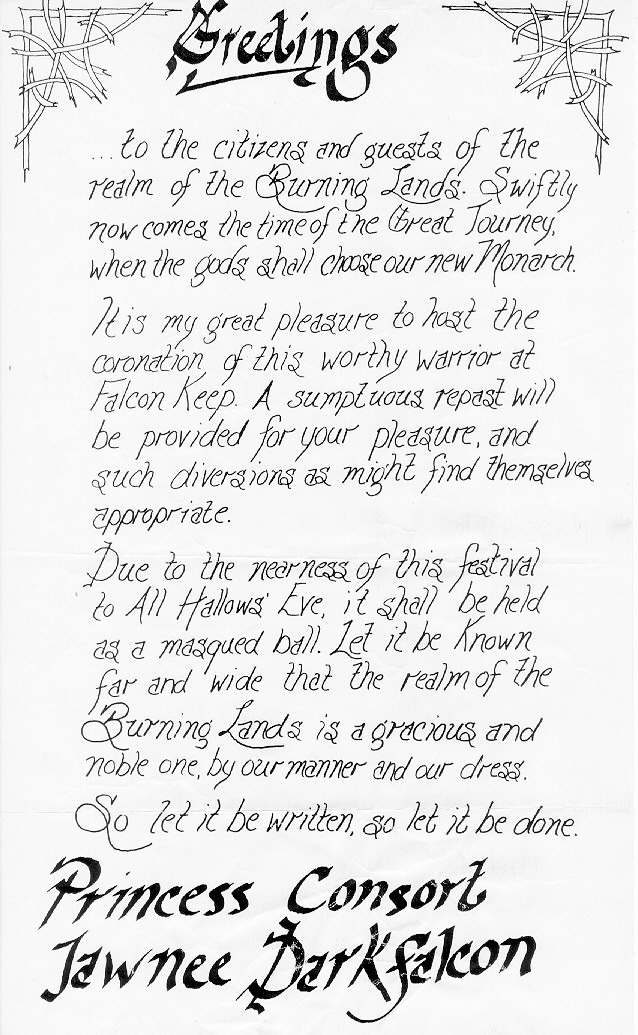 Greetings
...to the citizens and guests of the
realm of the Burning Lands. Swiftly
now comes the time of the Great Journey,
when the gods shall choose our new Monarch.
It is my great pleasure to host the
coronation of this worthy warrior at
Falcon Keep. A sumptuous repast will
be provided for your pleasure, and
such diversions as might find themselves
appropriate.
Due to the nearness of this festival
to All Hallows' Eve, it shall be held
as a masqued ball. Let it be Known
far and wide that the realm of the
Burning Lands is a gracious and
noble one, by our manner and our dress.
So let it be written, so let it be done.
Princess Consort
Tawnee Darkfalcon